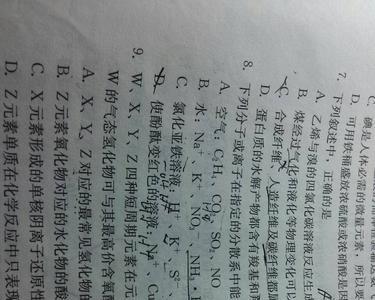 C. 碘是人体必需的微量元素，所以要
D. 可用铁桶盛放浓硫酸或浓硝酸是因
7. 下列叙述中，正确的是
A. 乙烯与溴的四氯化碳溶液反应生成
B. 煤经过气化和液化等物理变化可
C. 合成纤维、人造纤维及碳纤维都属
D. 蛋白质的水解产物都含有羧基和羟
8. 下列分子或离子在指定的分散系中能
A. 空气：C₂H₄、CO₂、SO₂、NO
B. 水：Na⁺、K⁺、NO₃⁻、NH₃
C. 氯化亚铁溶液：H⁺、K⁺、S²⁻
D. 使酚酞变红色的溶液：Cu
9. W、X、Y、Z四种短周期元素在元
W的气态氢化物可与其最高价含氧酸
A. X、Y、Z对应的最常见氢化物的
B. Z元素氧化物对应的水化物的酸
C. X元素形成的单核阴离子还原性
D. Z元素单质在化学反应中只表现